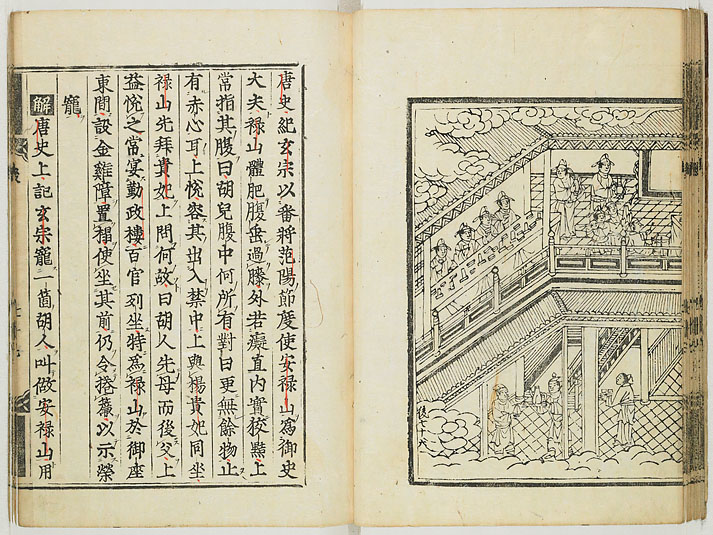 唐史紀玄宗以番將范陽節度使安祿山爲御史
大夫祿山體肥腹垂過膝外若癡直內實狡黠上
常指其腹曰胡兒腹中何所有對曰更無餘物止
有赤心耳上悅容其出入禁中上與楊貴妃同坐
祿山先拜貴妃上問何故曰胡人先母而後父上
益悅之嘗宴勤政樓百官列坐特爲祿山於御座
東間設金雞障置榻使坐其前仍令捲簾以示榮
寵
解唐史上記玄宗寵一箇胡人叫做安祿山用
後七十六